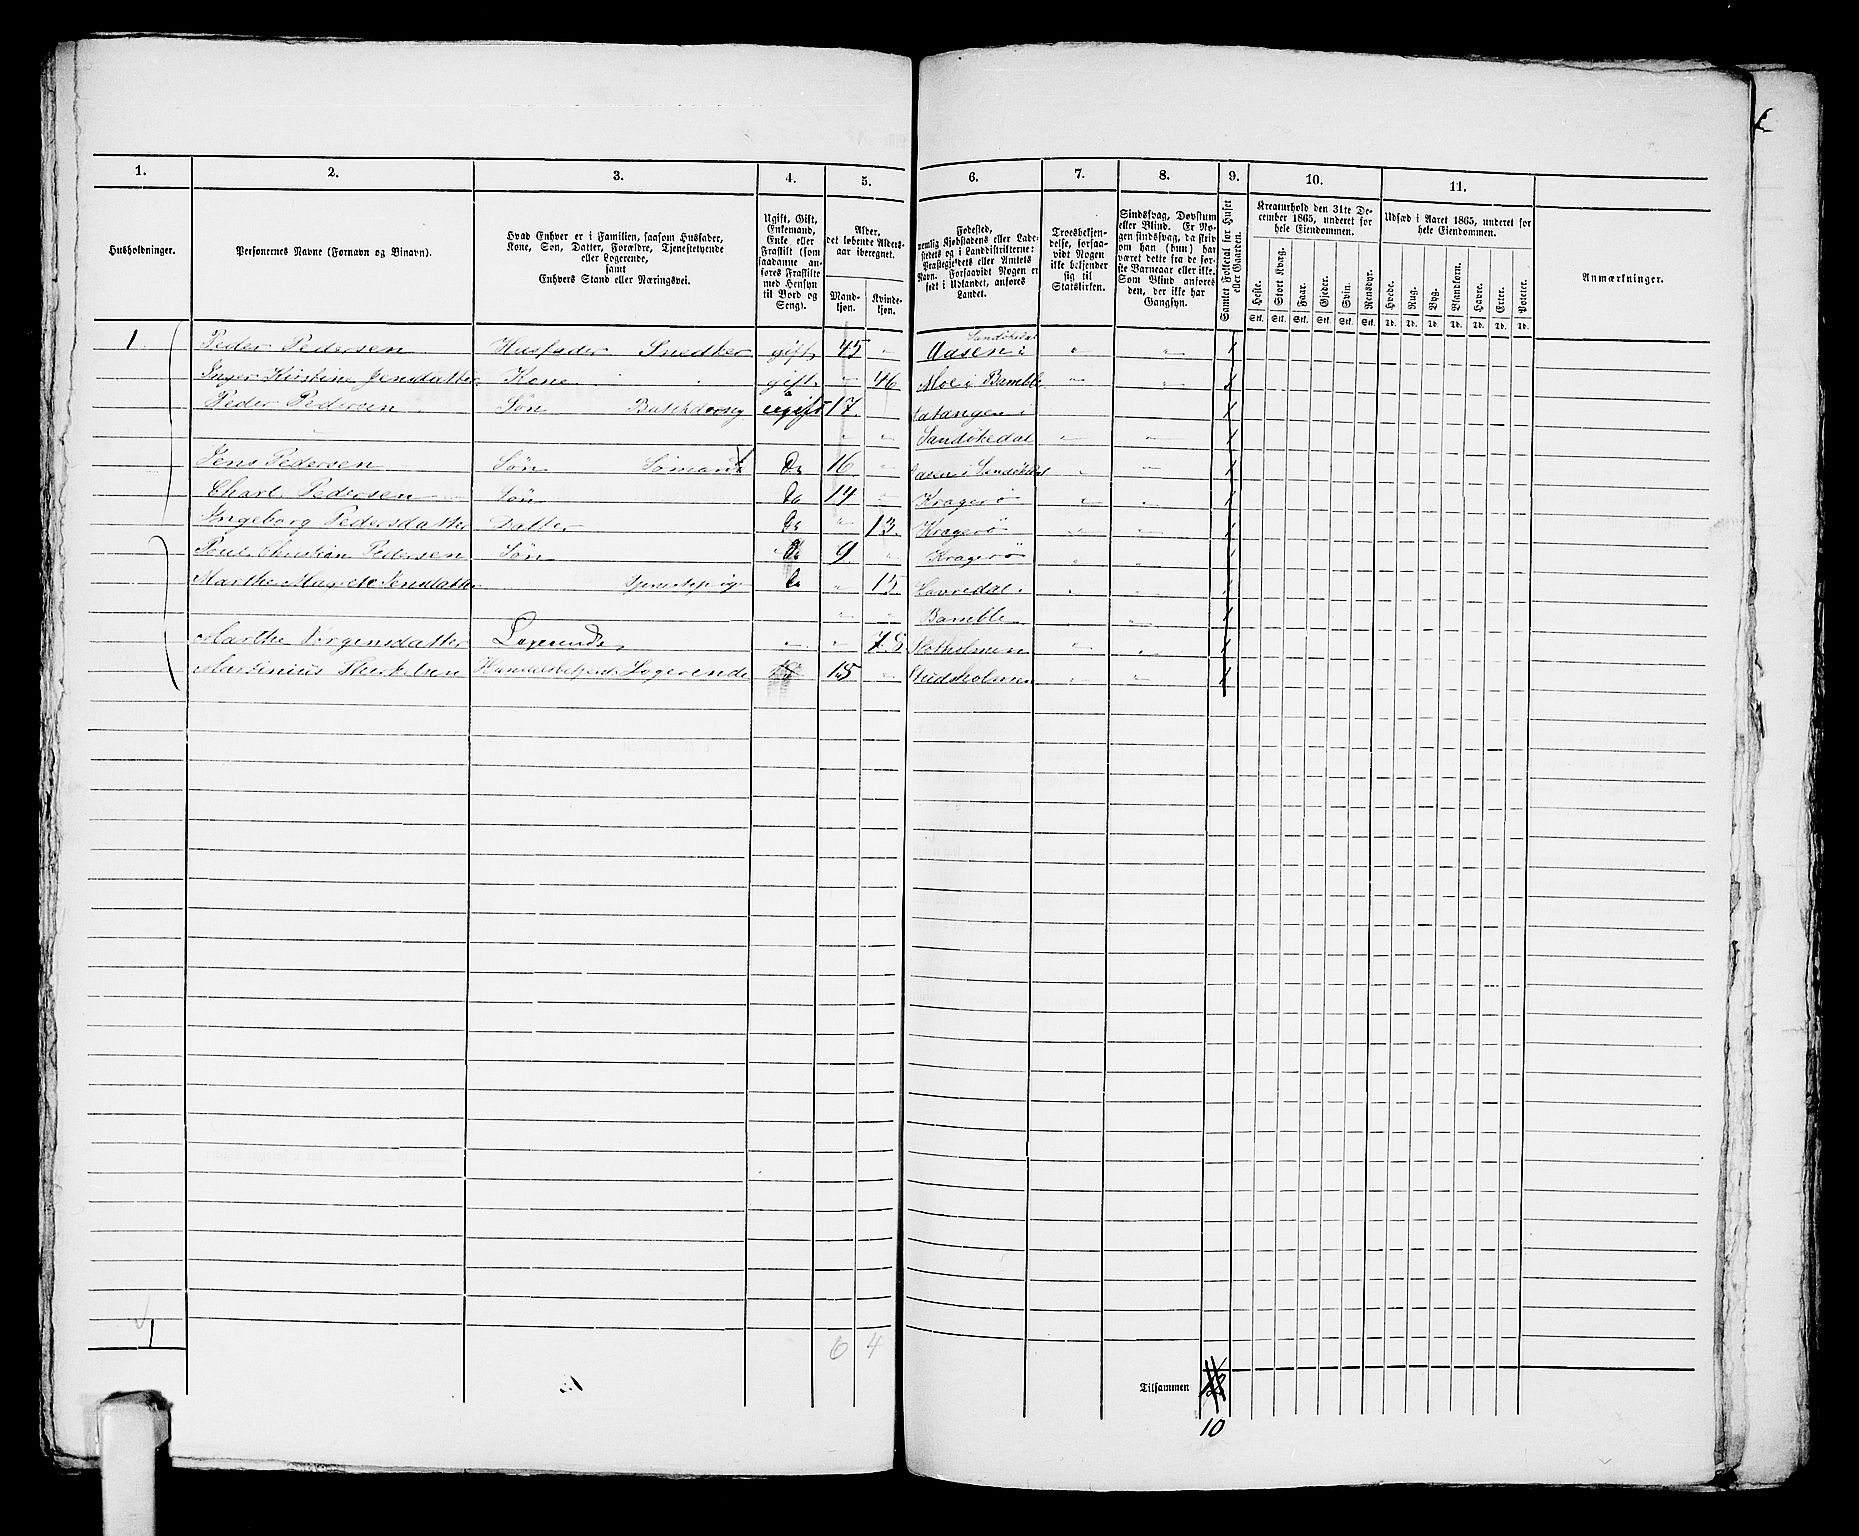 1. 2. 3. 4. 5. 6. 7. 8. 9. 10. 11.
Husholdninger.
Personernes Navne (Fornavn og Binavn).
Hvad Enhver er i Familien, saasom Husfader,
Kone, Søn, Datter, Forældre, Tjenestetyende
eller Logerende,
samt
Enhvers Stand eller Næringsvei.
Ugift, Gift,
Enkemand,
Enke eller
Fraskilt (som
saadanne an-
føres Fraskilte
med Hensyn
til Bord og
Seng).
Alder,
det løbende Alders-
aar iberegnet.
Mand-
kjøn.
Kvinde-
kjøn.
Fødested,
nemlig Kjøbstadens eller Lade-
stedets og i Landdistrikterne:
Præstegjeldets eller Amtets
Navn. Forsaavidt Nogen er
født i Udlandet, anføres
Landet.
Troesbekjen-
delse, forsaa-
vidt Nogen
ikke bekjender
sig til
Statskirken.
Sindssvag, Døvstum
eller Blind. Er No-
gen sindssvag, da skriv
om han (hun) har
været dette fra de før-
ste Barneaar eller ikke.
Som Blind anføres
den, der ikke har
Gangsyn.
Samlet Folketal for Huset
eller Gaarden.
Kreaturhold den 31te De-
cember 1865, underet for
hele Eiendommen.
Heste. Stort Kvæg. Faar. Gjeder. Svin. Rensdyr.
Stk. Stk. Stk. Stk. Stk. Stk.
Udsæd i Aaret 1865, underet for
hele Eiendommen.
Hvede. Rug. Byg. Blandkorn. Havre. Erter. Poteter.
Td. Td. Td. Td. Td. Td. Td.
Anmærkninger.
1 Peder Pedersen Husfader Snedker gift 45 " Aasen i Sandökedal " " 1
Inger Kirstine Jensdatter Kone gift " 46 Moe i Bamble " " 1
Peder Pedersen Søn ugift 17 Tatangen i 1
" " Sandökedal " " 1
Jens Pedersen Søn Sømand Do 16 " Aasen i Sandökedal " " 1
Charl. Pedersen Søn Do 14 " Kragerö " " 1
Ingeborg Pedersdatter Datter Do " 13 Kragerö " " 1
Poul Christian Pedersen Søn Do 9 " Kragerö " " 1
Marthe Magrete Jensdatter Tjenestepige Do " 15 " " 1
" " Bamble " " 1
Marthe Jörgensdatter Logerende " " 78 " " 1
Martinius Therkelsen Handelsbetjent Logerende Do 15 " " " 1
1
6 4
Tilsammen
10